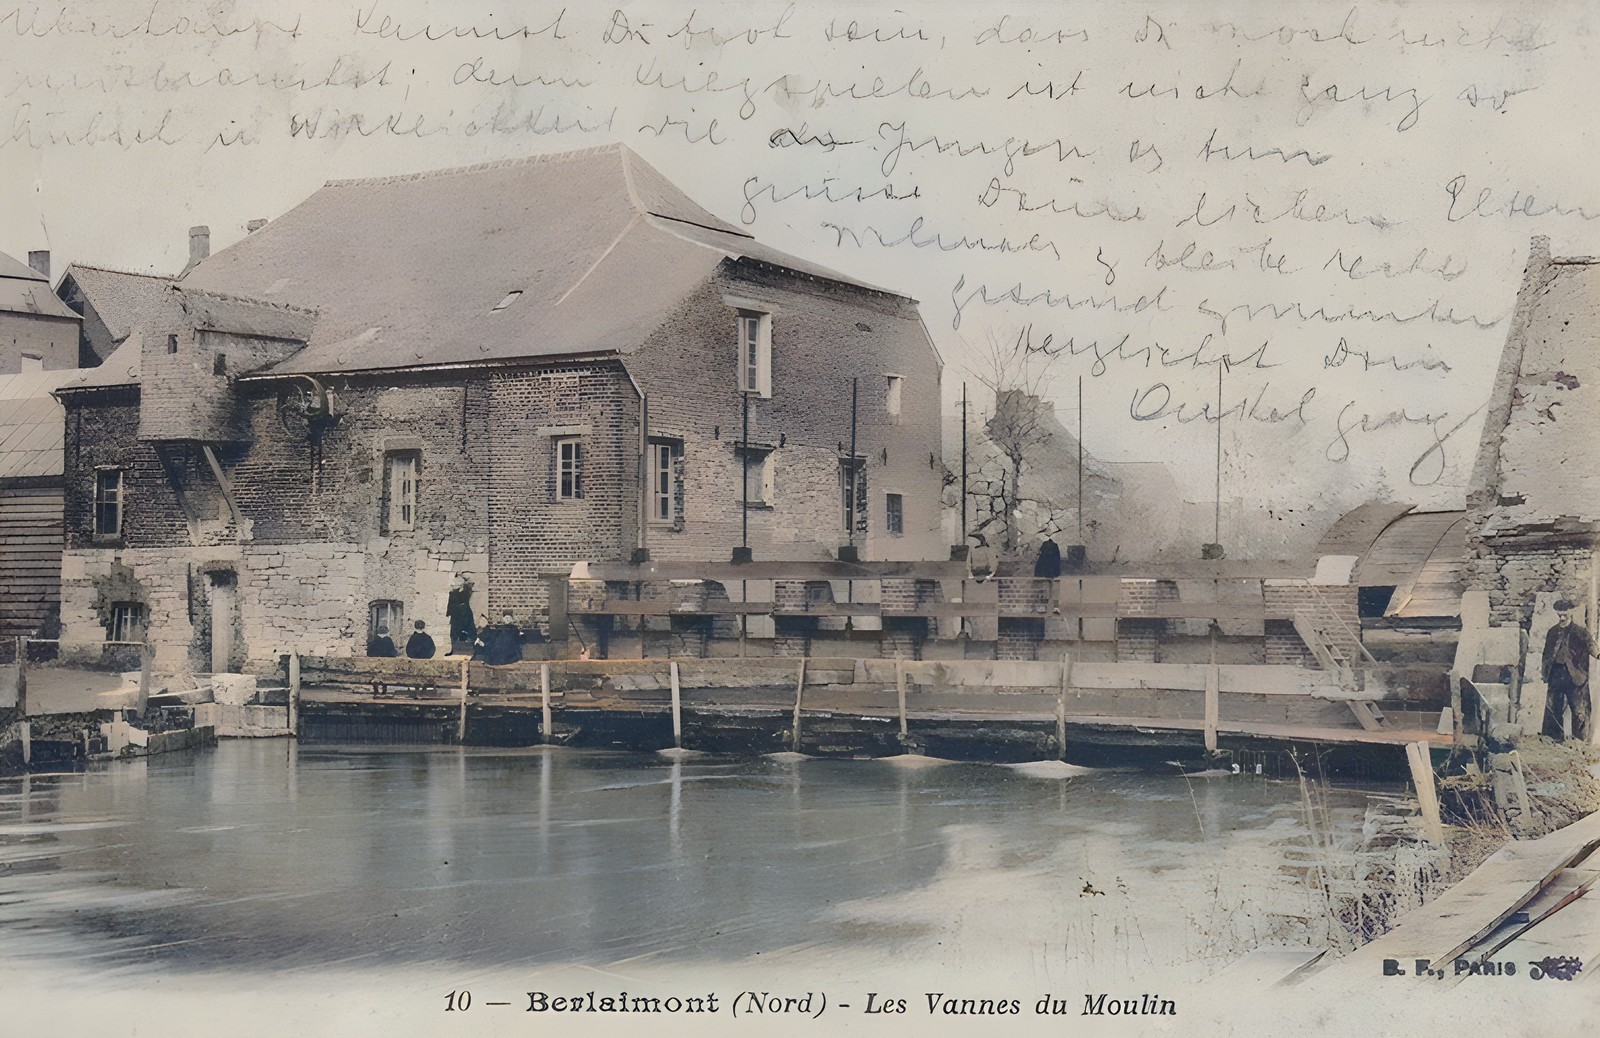 Überhaupt kannst Du froh sein, dass Du noch nicht
mitbrauchst; denn Kriegspielen ist nicht ganz so
hübsch in Wirklichkeit wie die Jungen es tun
grüsse Deine lieben Eltern
& bleibe recht
gesund & munter
Herzlichst Dein
Onkel Georg
B. F., PARIS
10 — Berlaimont (Nord) - Les Vannes du Moulin